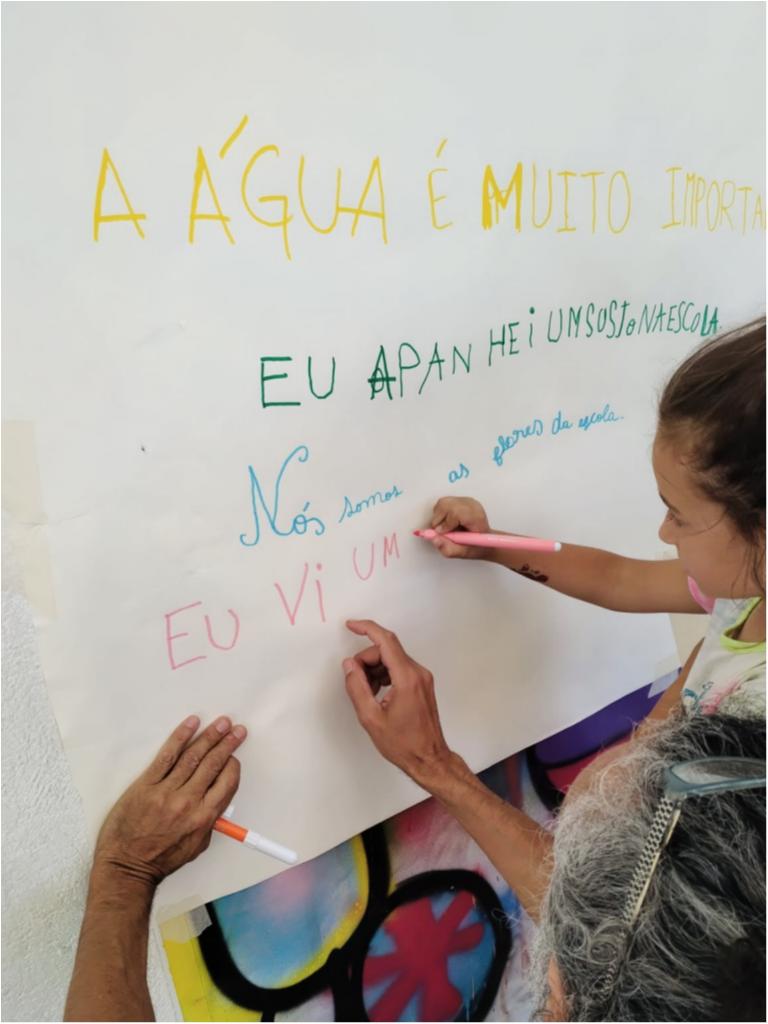 A ÁGUA É MUITO IMPORTA
EU APANHEI UM SUSTO NA ESCOLA.
Nós somos as flores da escola.
EU Vi UM